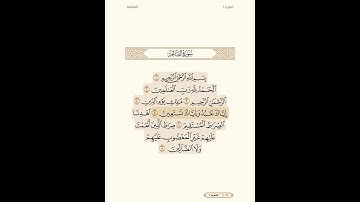 الفاتحة
الجزء ١
سورة الفاتحة
بسم الله الرحمن الرحيم ١
الحمد لله رب العالمين ٢
الرحمن الرحيم ٣ مالك يوم الدين ٤
إياك نعبد وإياك نستعين ٥ اهدنا
الصراط المستقيم ٦ صراط الذين أنعمت
عليهم غير المغضوب عليهم
ولا الضالين ٧